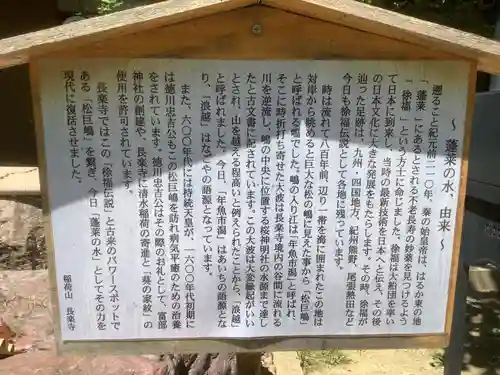 〜 蓬莱の水、由来 〜
遡ること紀元前二一〇年、秦の始皇帝は、はるか東の地
「蓬莱」にあるとされる不老長寿の妙薬を見つけるよう
「徐福」という方士に命じました。徐福は大船団を率い
て日本に到来し、当時の最新技術を日本へと伝え、その後
の日本文化に大きな発展をもたらします。その時、徐福が
辿った足跡は、九州・四国地方、紀州熊野、尾張熱田など
今日も徐福伝説として各地に残っています。
時は流れて八百年前、一帯を海に囲まれたこの地は
対岸から眺めると巨大な松の嶋に見えた事から「松巨嶋」
と呼ばれる嶋でした。嶋の入り江は「年魚市潟」と呼ばれ、
そこに時折打ち寄せた大波は長楽寺境内の谷間に流れる
川を逆流し、嶋の中央に位置する桜神明社の水源まで達し
たと古文書に記されています。この大波は大変縁起がいい
とされ、山を越える程高いと例えられたことから、「浪越」
と呼ばれました。今日、「年魚市潟」はあいちの語源とな
り、「浪越」はなごやの語源となっています。
また、六〇〇年代には持統天皇が、一六〇〇年代初期に
は徳川忠吉公もこの松巨嶋を訪れ病気平癒のための治養
をされています。徳川忠吉公はその際のお礼として、富部
神社の創建や、長楽寺に清水稲荷の寄進と「葵の家紋」の
使用を許可されています。
長楽寺ではこの「徐福伝説」と古来のパワースポットで
ある「松巨嶋」を繋ぎ、今日「蓬莱の水」としてその力を
現代に復活させました。
稲荷山 長楽寺